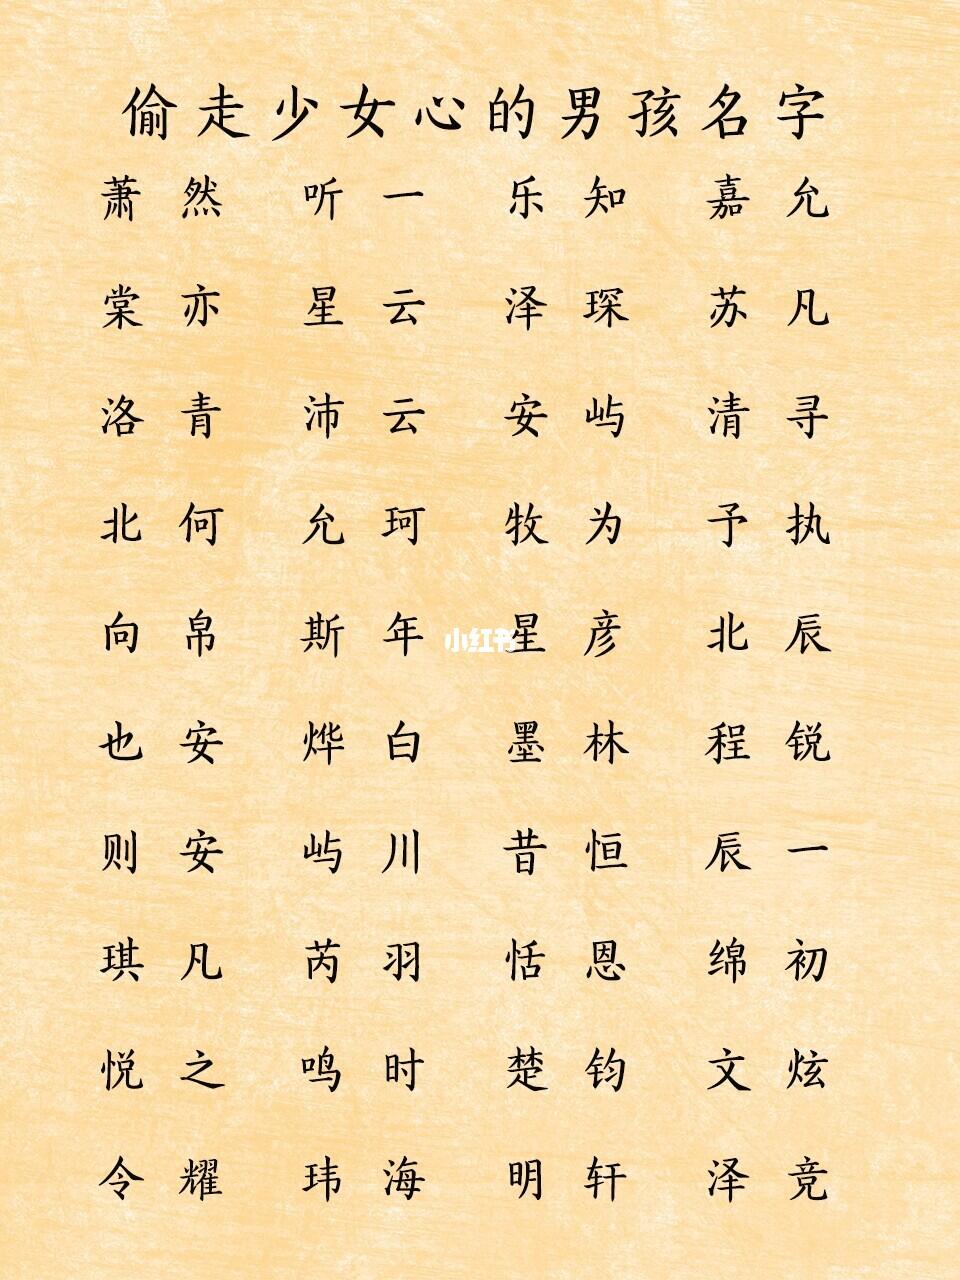 偷走少女心的男孩名字
萧然 听一 乐知 嘉允
棠亦 星云 泽琛 苏凡
洛青 沛云 安屿 清寻
北何 允珂 牧为 予执
向帛 斯年 星彦 北辰
小红书
也安 烨白 墨林 程锐
则安 屿川 昔恒 辰一
琪凡 芮羽 恬恩 绵初
悦之 鸣时 楚钧 文炫
令耀 玮海 明轩 泽竞